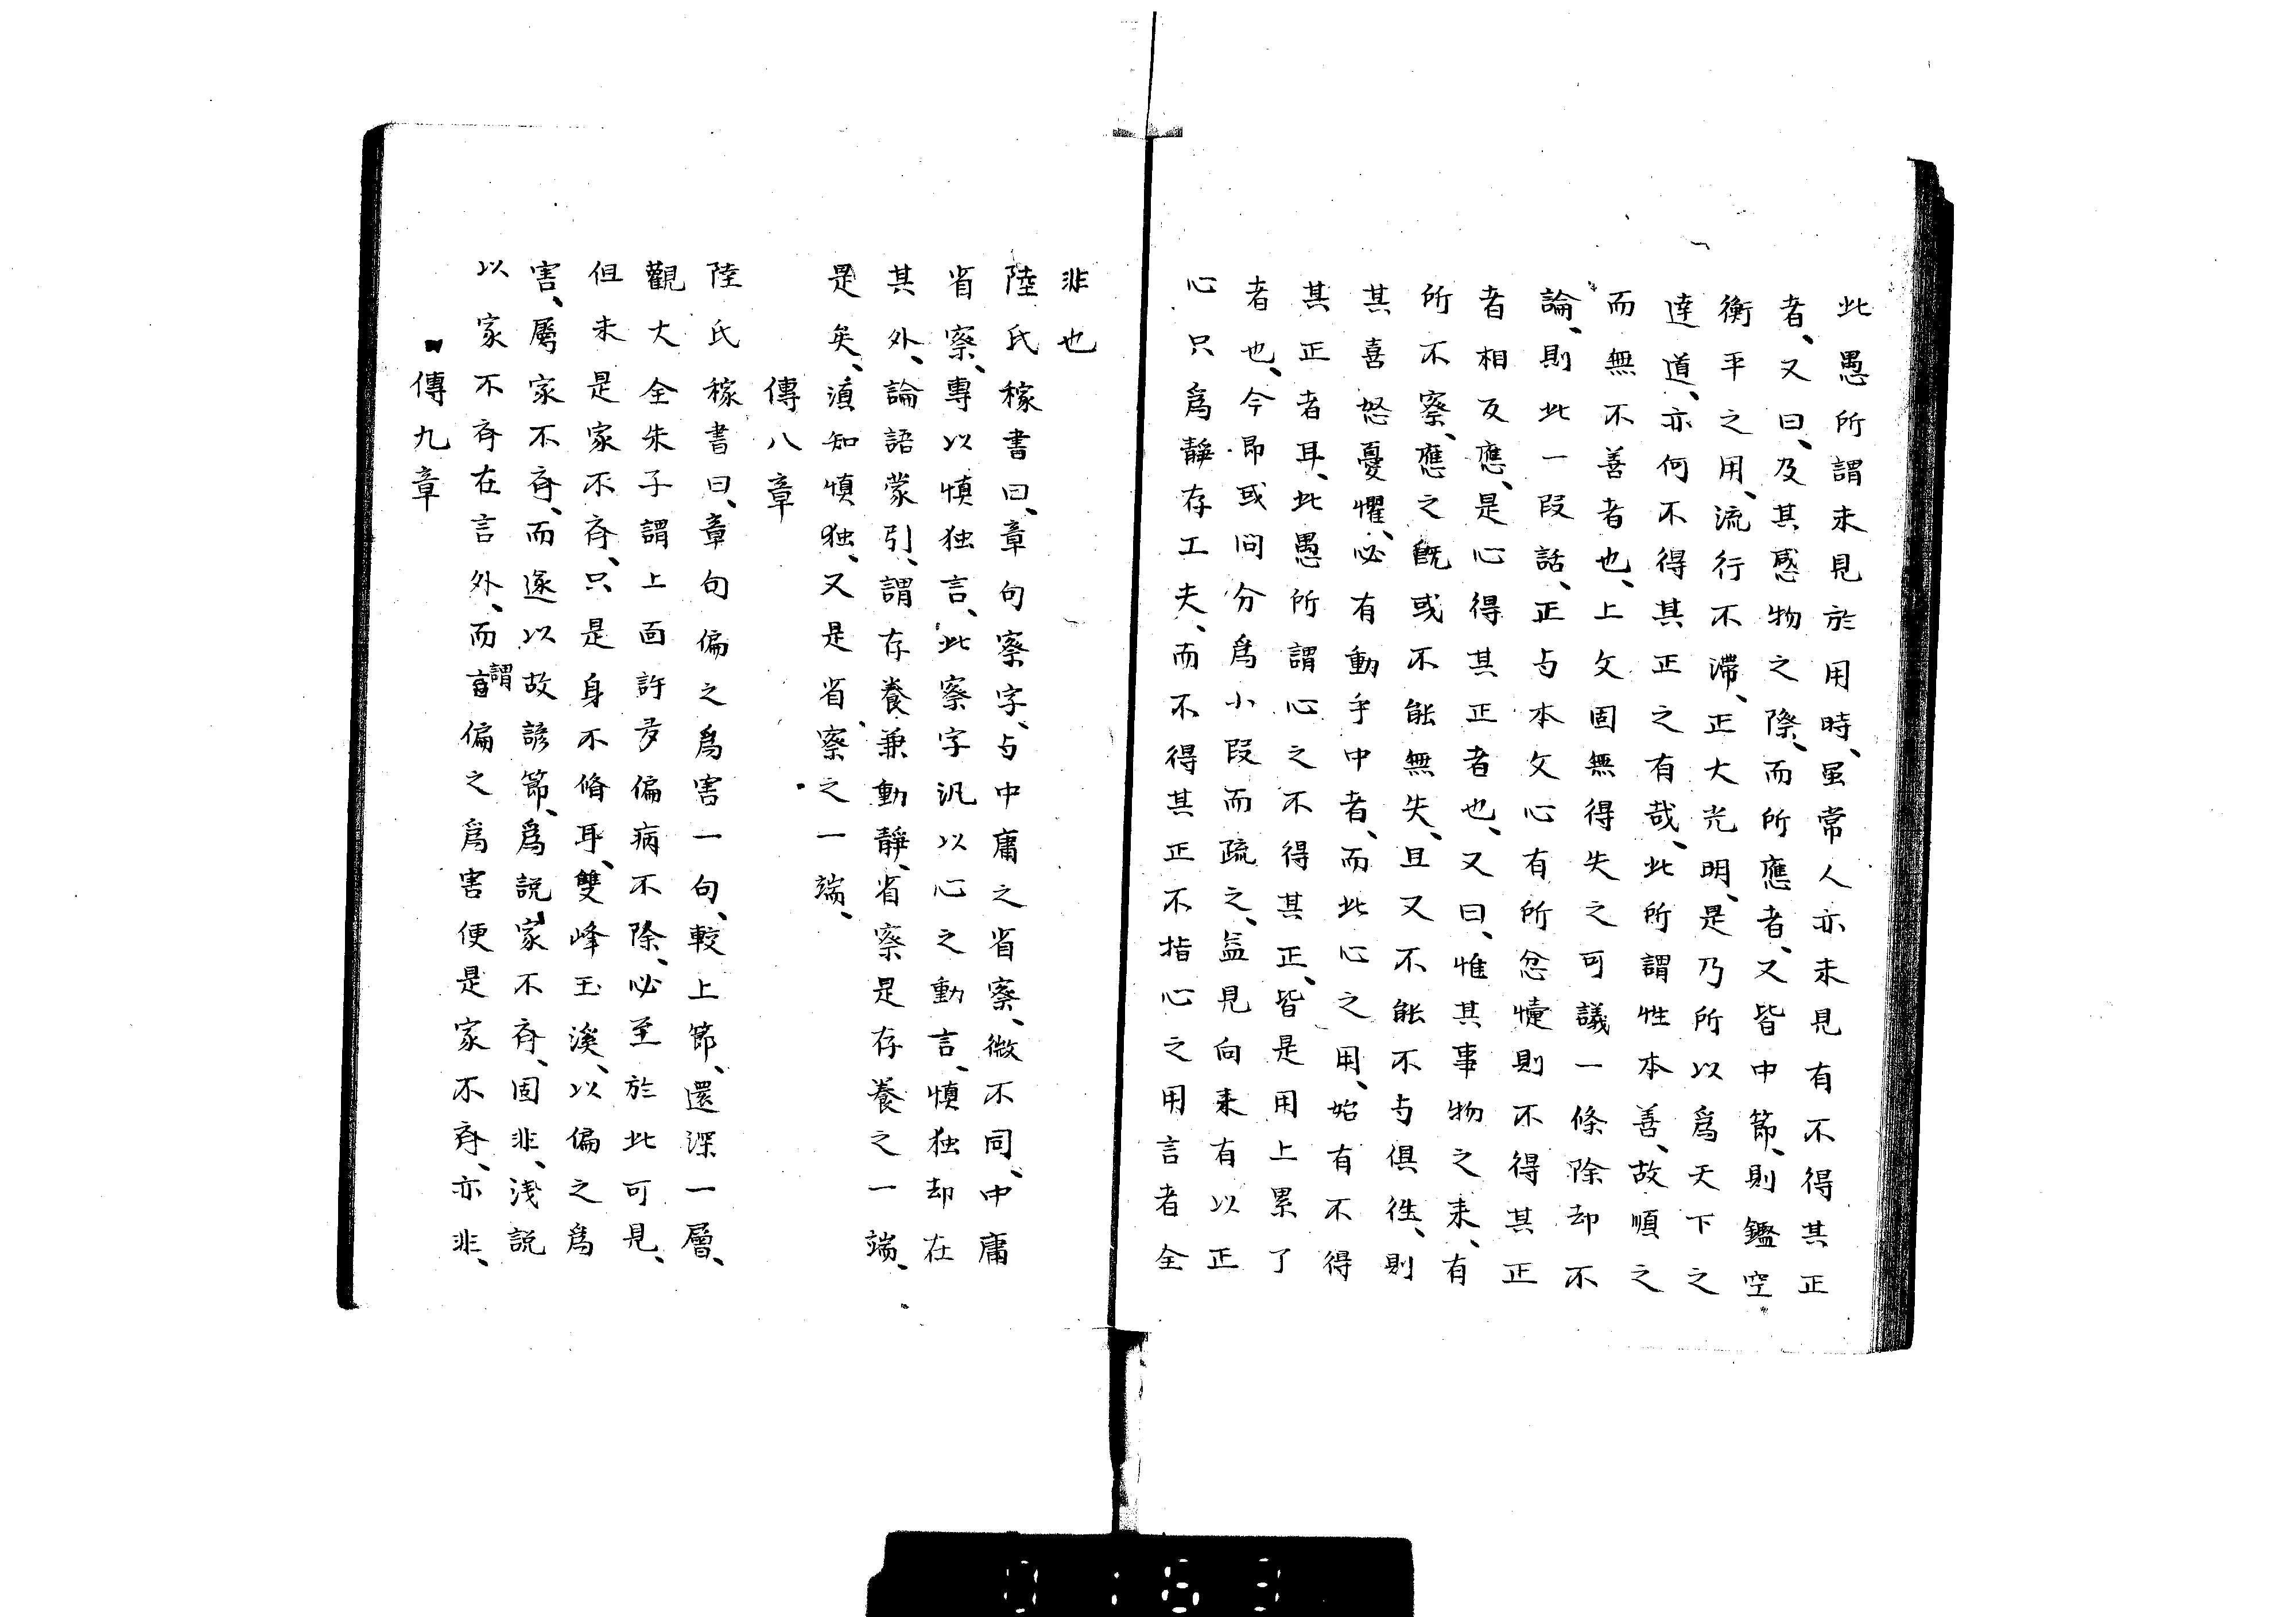 此愚所謂未見於用時、虽常人亦未見有不得其正
者、又曰、及其感物之際、而所應者、又皆中節、則鑑空
衡平之用、流行不滞、正大光明、是乃所以爲天下之
達道、亦何不得其正之有哉、此所謂性本善、故順之
而無不善者也、上文固無得失之可議一條除却不
論、則此一段話、正与本文心有所忿懥則不得其正
者相反應、是心得其正者也、又曰、惟其事物之来、有
所不察、應之既或不能無失、且又不能不与俱徃、則
其喜怒憂懼、必有動乎中者、而此心之用、始有不得
其正者耳、此愚所謂心之不得其正、皆是用上累了
者也、今昂或问分爲小段而疏之、益見向来有以正
心只爲静存工夫、而不得其正不指心之用言者全
非也
陸氏稼書曰、章句察字、与中庸之省察、微不同、中庸
省察、專以慎独言、此察字汎以心之動言、慎独却在
其外、論語蒙引、謂存養兼動静、省察是存養之一端、
是矣、湏知慎独、又是省察之一端、
傳八章
陸氏稼書曰、章句偏之爲害一句、較上節、還深一層、
觀大全朱子謂上面許多偏病不除、必至於此可見、
但未是家不斉、只是身不脩耳、雙峰玉溪、以偏之爲
害、屬家不斉、而遂以故諺節、爲説家不斉、固非、淺説
以家不斉在言外、而謂偏之爲害便是家不斉、亦非、
傳九章
0163